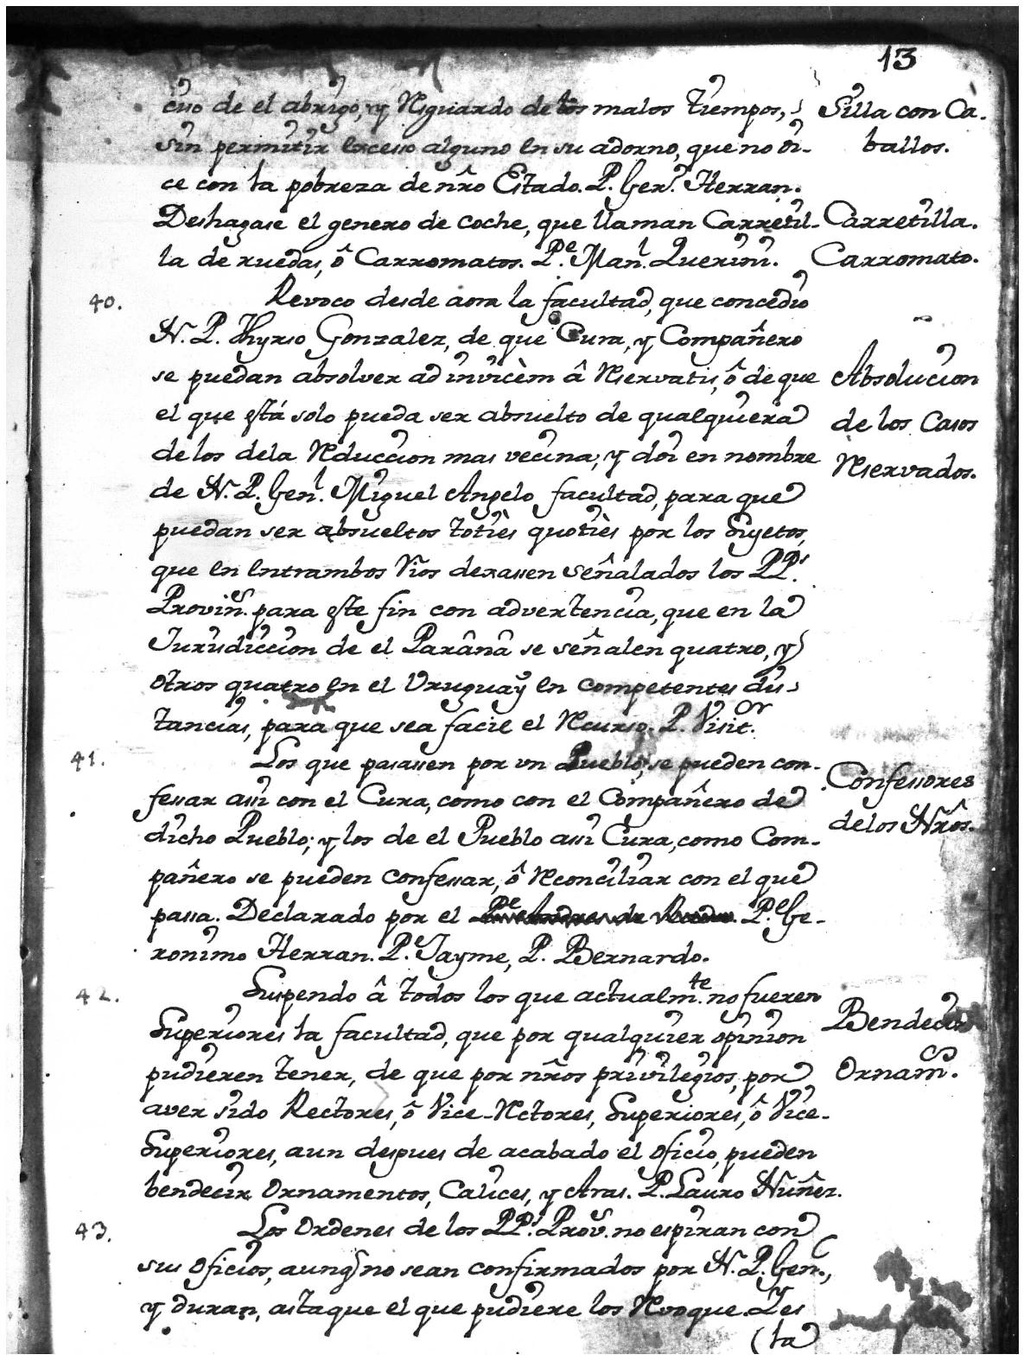 13
cuo de el abrigo, y Rsguardo de los malos tiempos,
sin permitir exceso alguno en su adorno, que no di-
ce con la pobreza de nr̃o Estado. P. Gerº. Herran.
Silla con Ca-
ballos.
Deshagase el genero de coche, que llaman Carretil-
la de ruedas, ô Carromatos. Pe. Manl. Querini.
Carretilla.
Carromato.
40. Revoco desde aora la facultad, que concedio
N. P. Thyrso Gonzalez, de que Cura, y Compañero
se puedan absolver ad invicèm â Rservatis, ô de que
el que está solo pueda ser absuelto de qualquiera
de los dela Rduccion mas vecina; y doi en nombre
de N. P. Genl. Miguel Angelo facultad, para que
puedan ser absueltos totiès quotiès por los Sujetos,
que en entrambos Rios dexassen señalados los PPs.
Provins. para este fin con advertencia, que en la
Jurisdiccion de el Parânâ se señalen quatro, y
otros quatro en el Uruguay en competentes dis-
tancias, para que sea facil el Rcurso. P. Visitor.
Absolucion
de los Casos
Rservados.
41. Los que pasassen por un Pueblo, se pueden con-
fessar assi con el Cura, como con el Compañero de
dicho Pueblo; y los de el Pueblo assi Cura, como Com-
pañero se pueden confessar, ô Rconciliar con el que
passa. Declarado por el Pe. Ge-
ronimo Herran. Pe. Jayme, P. Bernardo.
Confessores
de los Nr̃os.
42. Suspendo â todos los que actualmte. no fueren
Superiores la facultad, que por qualquier opinion
pudieren tener, de que por nr̃os privilegios, por
aver sido Rectores, ô Vice-Rctores, Superiores, ô Vice-
Superiores, aun despues de acabado el oficio, pueden
bendecir Ornamentos, Calices, y Aras. P. Lauro Nuñez.
Bendecir
Ornams.
43. Los Ordenes de los PPs. Provs. no espiran con
sus Oficios, aunq̃ no sean confirmados por N. P. Genl.,
y duran, asta que el que pudiere los Rvoque. Ley
(la